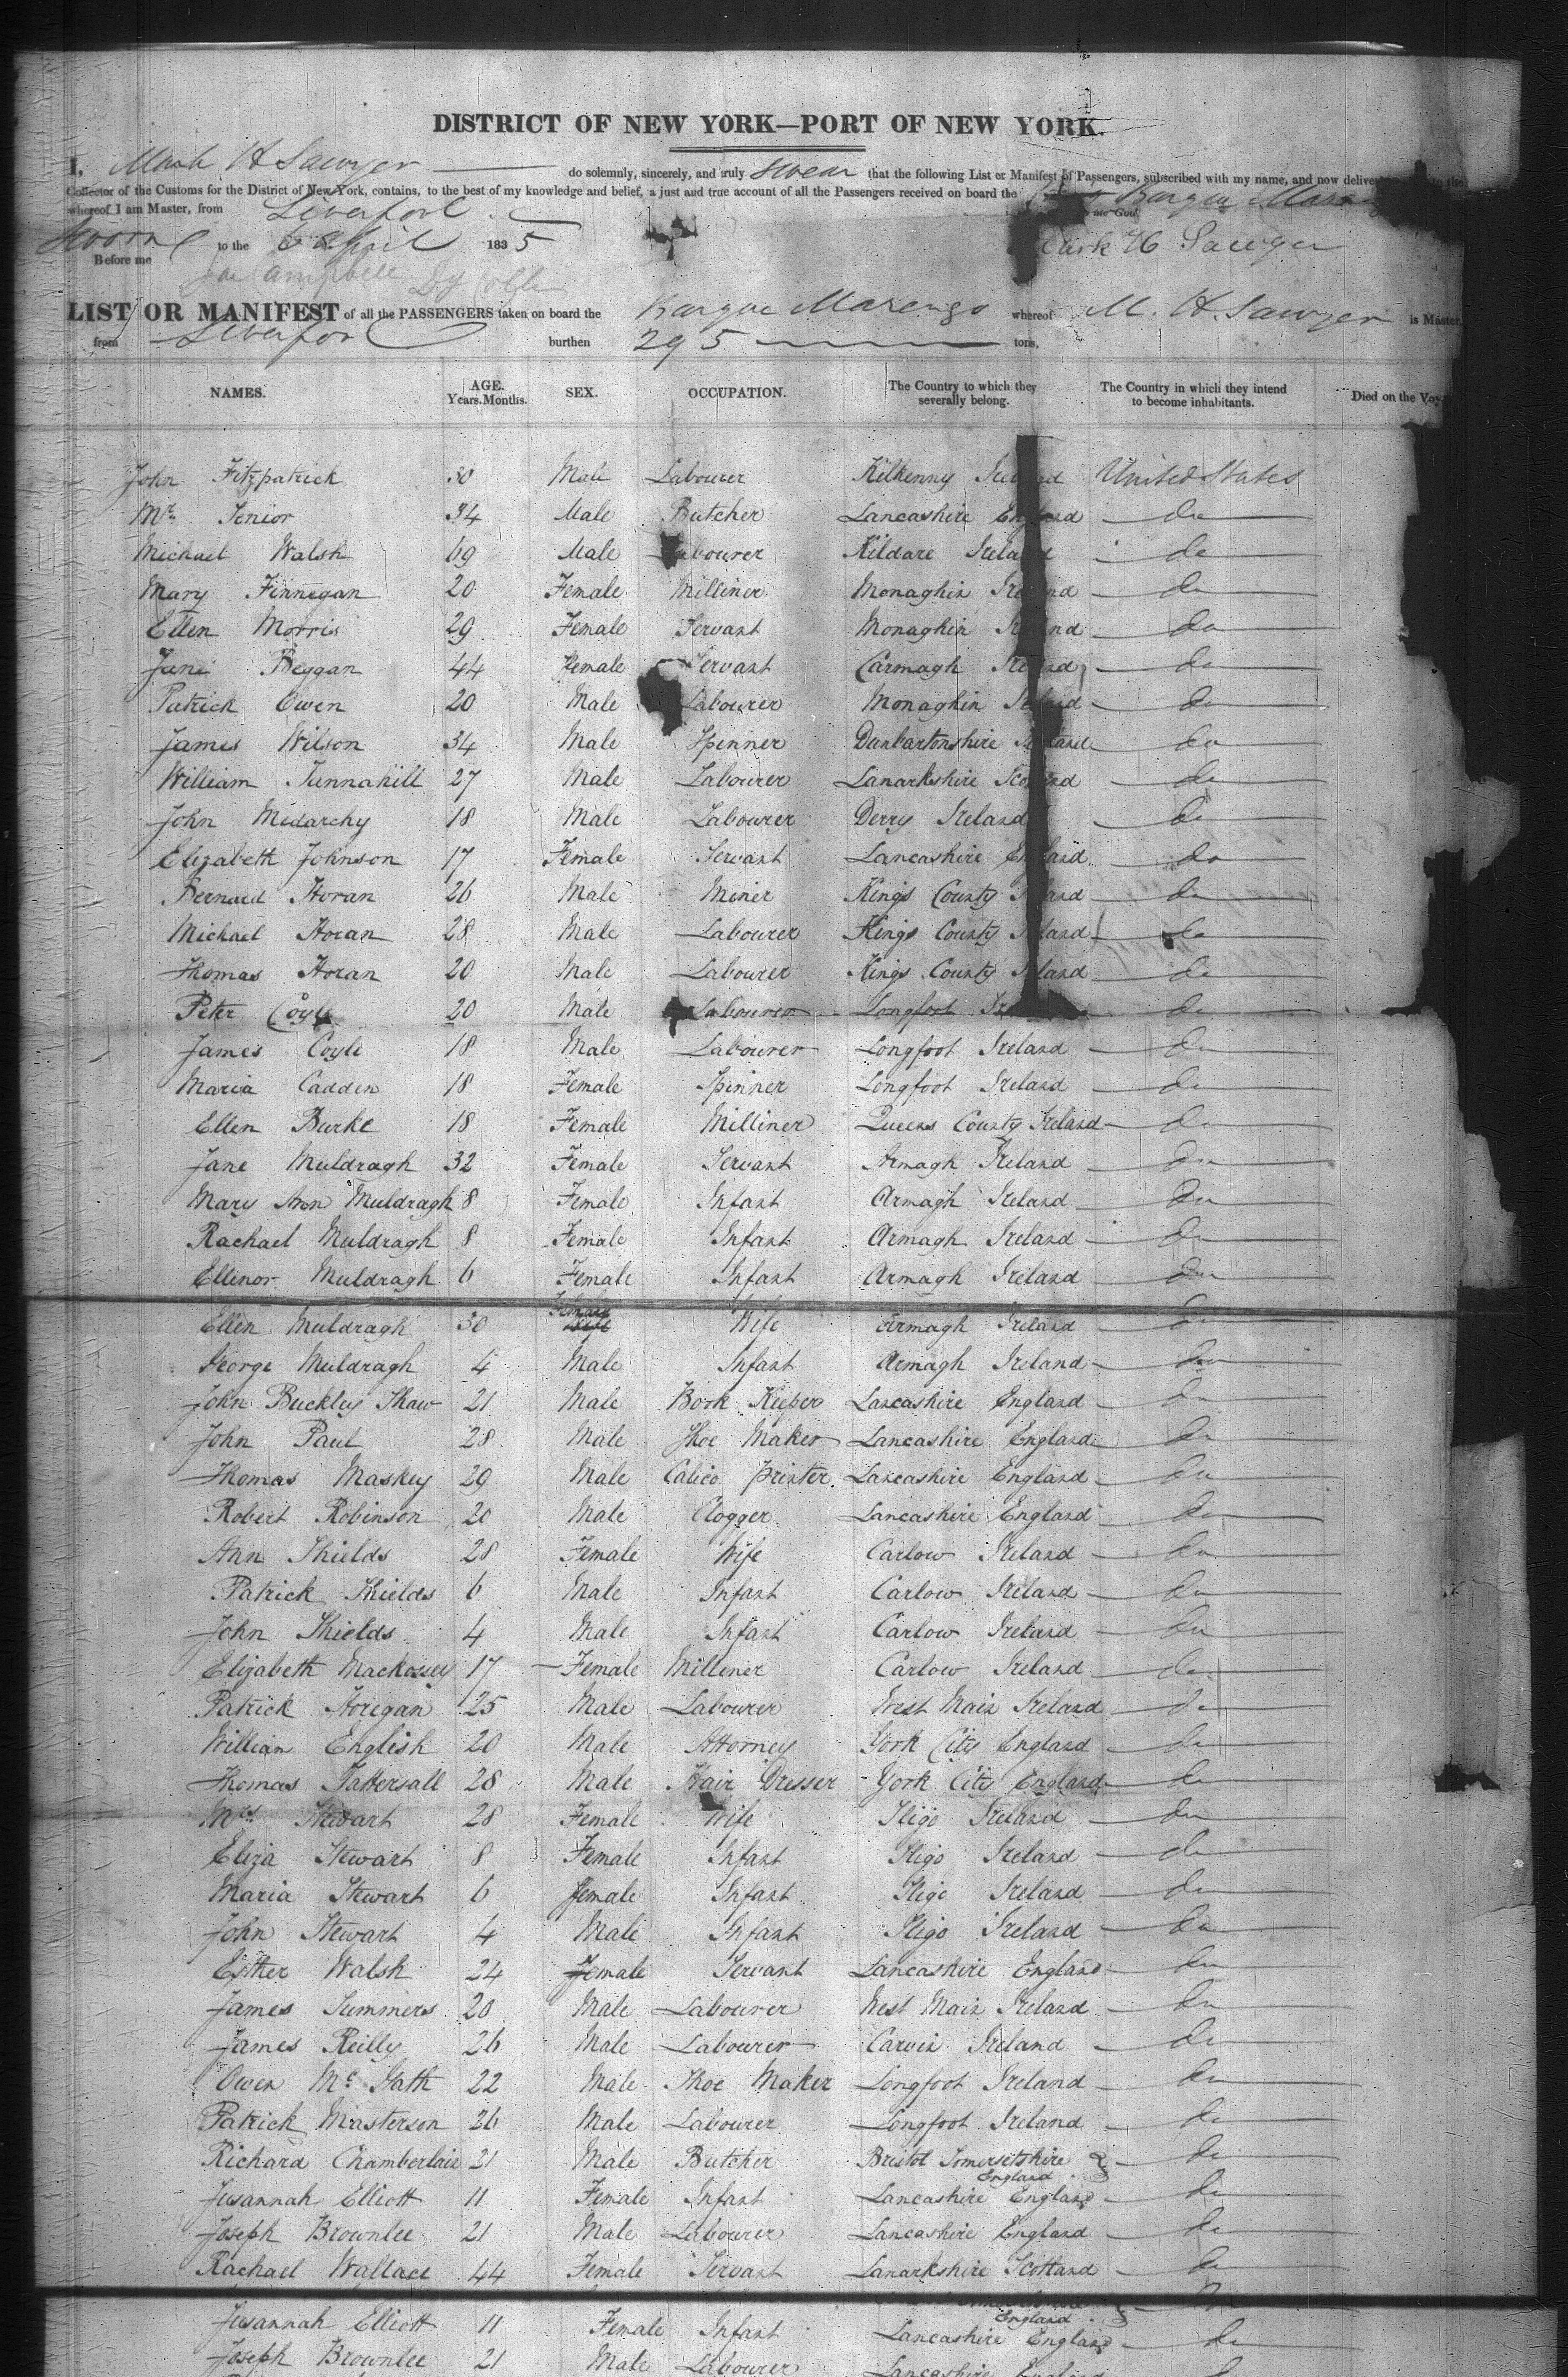 DISTRICT OF NEW YORK—PORT OF NEW YORK.
I, Mark H Sawyer do solemnly, sincerely, and truly swear that the following List or Manifest of Passengers, subscribed with my name, and now delivered the
Collector of the Customs for the District of New York, contains, to the best of my knowledge and belief, a just and true account of all the Passengers received on board the Barque
whereof I am Master, from Liverpool God
Sworn to the 6 April 1835 Mark H Sawyer
Before me Campbell Dy Collr
LIST OR MANIFEST of all the PASSENGERS taken on board the Barque Marengo whereof M. H. Sawyer is Master,
from Liverpool burthen 295 tons,
NAMES. AGE. Years. Months. SEX. OCCUPATION. The Country to which they severally belong. The Country in which they intend to become inhabitants. Died on the Voy
John Fitzpatrick 30 Male Labourer Kilkenny Ireland United States
Mr. Senior 34 Male Butcher Lancashire England do
Michael Walsh 69 Male Labourer Kildare Ireland do
Mary Finnegan 20 Female Milliner Monaghin Ireland do
Ellen Morris 29 Female Servant Monaghin Ireland do
Jane Beggan 44 Female Servant Carmagh Ireland do
Patrick Owen 20 Male Labourer Monaghin Ireland do
James Wilson 34 Male Spinner Dunbartonshire Scotland do
William Tunnahill 27 Male Labourer Lanarkshire Scotland do
John Medarchy 18 Male Labourer Derry Ireland do
Elizabeth Johnson 17 Female Servant Lancashire England do
Bernard Horan 26 Male Miner Kings County Ireland do
Michael Horan 28 Male Labourer Kings County Ireland do
Thomas Horan 20 Male Labourer Kings County Ireland do
Peter Coyle 20 Male Labourer Longfoot Ireland do
James Coyle 18 Male Labourer Longfoot Ireland do
Maria Cadden 18 Female Spinner Longfoot Ireland do
Ellen Burke 18 Female Milliner Queens County Ireland do
Jane Muldragh 32 Female Servant Armagh Ireland do
Mary Ann Muldragh 8 Female Infant Armagh Ireland do
Rachael Muldragh 8 Female Infant Armagh Ireland do
Ellenor Muldragh 6 Female Infant Armagh Ireland do
Ellen Muldragh 30 Female Wife Armagh Ireland do
George Muldragh 4 Male Infant Armagh Ireland do
John Buckley Shaw 21 Male Book Keeper Lancashire England do
John Paul 28 Male Shoe Maker Lancashire England do
Thomas Maskey 29 Male Calico printer Lancashire England do
Robert Robinson 20 Male Clogger Lancashire England do
Ann Shields 28 Female Wife Carlow Ireland do
Patrick Shields 6 Male Infant Carlow Ireland do
John Shields 4 Male Infant Carlow Ireland do
Elizabeth Mackossey 17 Female Milliner Carlow Ireland do
Patrick Horigan 25 Male Labourer West Main Ireland do
William English 20 Male Attorney York City England do
Thomas Tattersall 28 Male Hair Dresser York City England do
Mrs Stewart 28 Female Wife Sligo Ireland do
Eliza Stewart 8 Female Infant Sligo Ireland do
Maria Stewart 6 female Infant Sligo Ireland do
John Stewart 4 Male Infant Sligo Ireland do
Esther Walsh 24 Female Servant Lancashire England do
James Summers 20 Male Labourer West Main Ireland do
James Reilly 26 Male Labourer Carvin Ireland do
Owen Mc Gath 22 Male Shoe Maker Longfoot Ireland do
Patrick Masterson 26 Male Labourer Longfoot Ireland do
Richard Chamberlain 21 Male Butcher Bristol Somersetshire England do
Susannah Elliott 11 Female Infant Lancashire England do
Joseph Brownlee 21 Male Labourer Lancashire England do
Rachael Wallace 44 Female Servant Lanarkshire Scotland do
England
Susannah Elliott 11 Female Infant Lancashire England do
Joseph Brownlee 21 Male Labourer Lancashire England